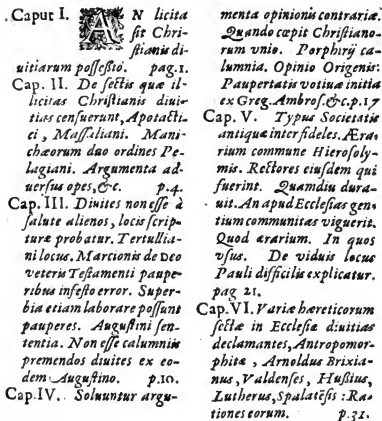 Caput I. AN licita
sit Chri-
stianis di-
uitiarum possessio. pag.1.
Cap. II. De sectis quæ il-
licitas Christianis diui-
tias censuerunt, Apotacti-
ci, Massaliani. Mani-
chæorum duo ordines Pe-
lagiani. Argumenta ad-
uersus opes, &c. p.4.
Cap. III. Diuites non esse à
salute alienos, locis scrip-
turæ probatur. Tertullia-
ni locus. Marcionis de DEO
veteris Testamenti paupe-
ribus infesto error. Super-
bia etiam laborare possunt
pauperes. Augustini sen-
tentia. Non esse calumniis
premendos diuites ex eo-
dem Augustino. p.10.
Cap. IV. Soluuntur argu-
menta opinionis contrariæ.
Quando cœpit Christiano-
rum vnio. Porphirij ca-
lumnia. Opinio Origenis.
Paupertatis votiuæ initia
ex Greg. Ambros. &c. p.17
Cap. V. Typus Societatis
antiquæ inter fideles. Æra-
rium commune Hierosoly-
mis. Rectores eiusdem qui
fuerint. Quamdiu dura-
uit. An apud Ecclesias gen-
tium communitas viguerit.
Quod ærarium. In quos
vsus. De viduis locus
Pauli difficilis explicatur.
pag 21.
Cap. VI. Variæ hæreticorum
sectæ in Ecclesia diuitias
declamantes, Antropomor-
phitæ, Arnoldus Brixia-
nus, Valdenses, Hussius,
Lutherus, Spalatẽsis: Ra-
tiones eorum. p.31.